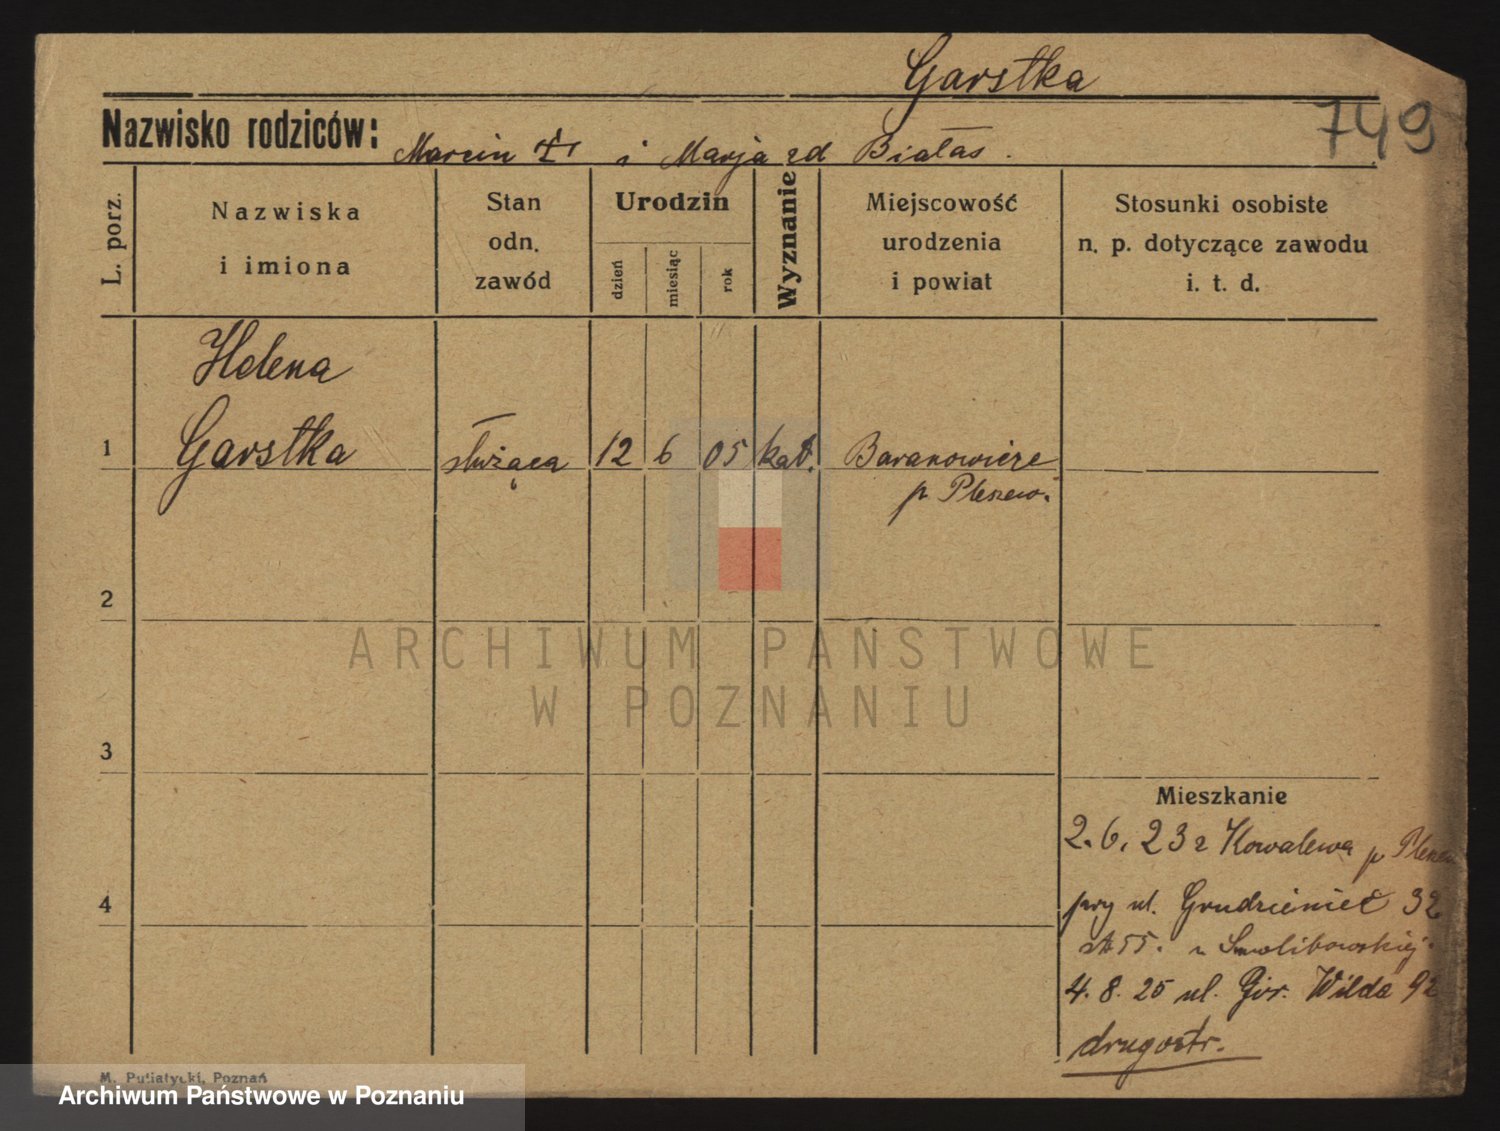 Garstka
749
Nazwisko rodziców: Marcin i Marja zd Białas.
L. porz.
Nazwiska
i imiona
Stan
odn.
zawód
Urodzin
dzień
miesiąc
rok
Wyznanie
Miejscowość
urodzenia
i powiat
Stosunki osobiste
n. p. dotyczące zawodu
i. t. d.
Helena
1 Garstka służąca 12 6 05 kat. Baranowicze
p. Pleszew.
2
3
4
ARCHIWUM PAŃSTWOWE
W POZNANIU
Mieszkanie
2. 6. 23 z Kowalewa p Pleszew
przy ul. Grudzieniec 32
55. u Smolibowskiej.
4. 8. 25 ul. Gór. Wilda 92
drugostr.
M. Putiatycki, Poznań
Archiwum Państwowe w Poznaniu